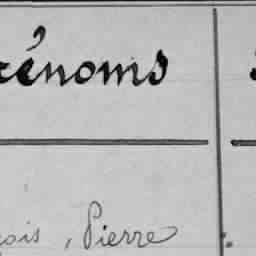 rénoms
çois, Pierre